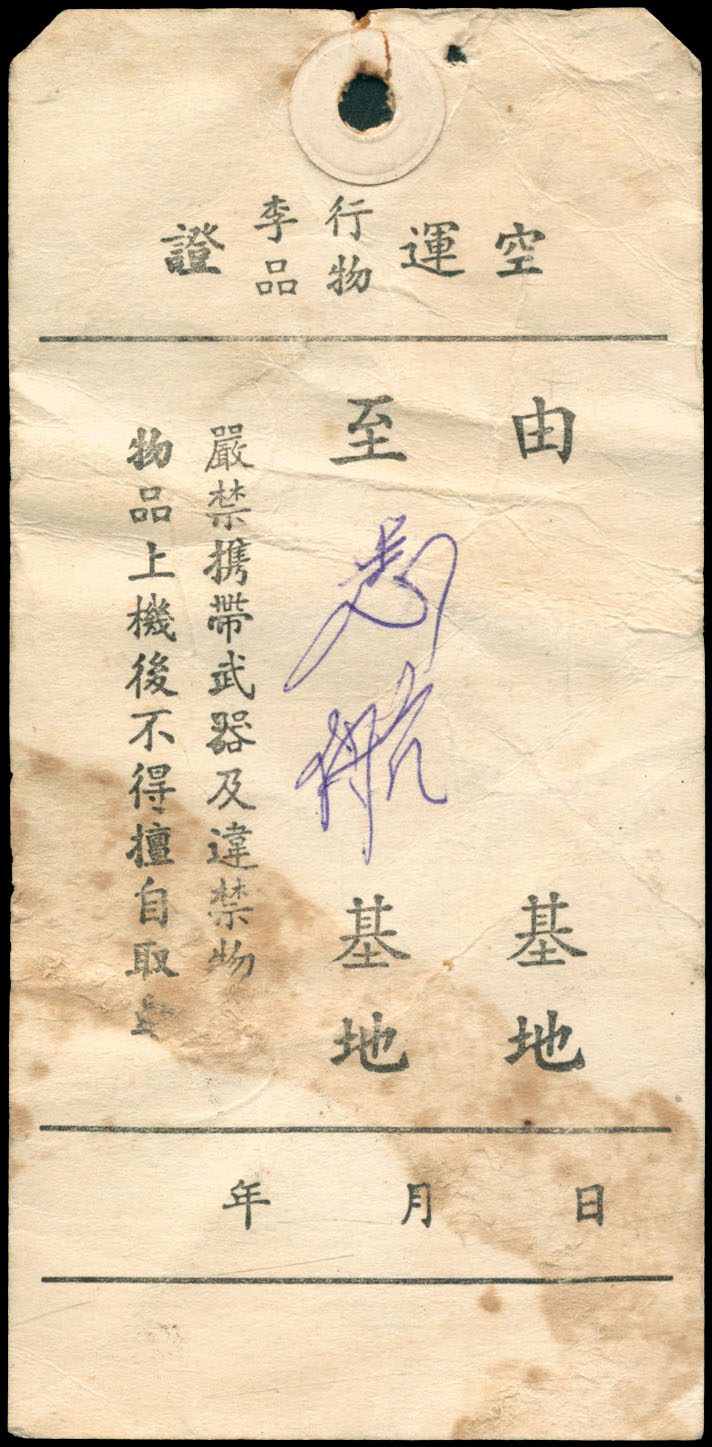 空運行李物品證
由 基地
至志航基地
嚴禁携帶武器及違禁物
物品上機後不得擅自取
年 月 日